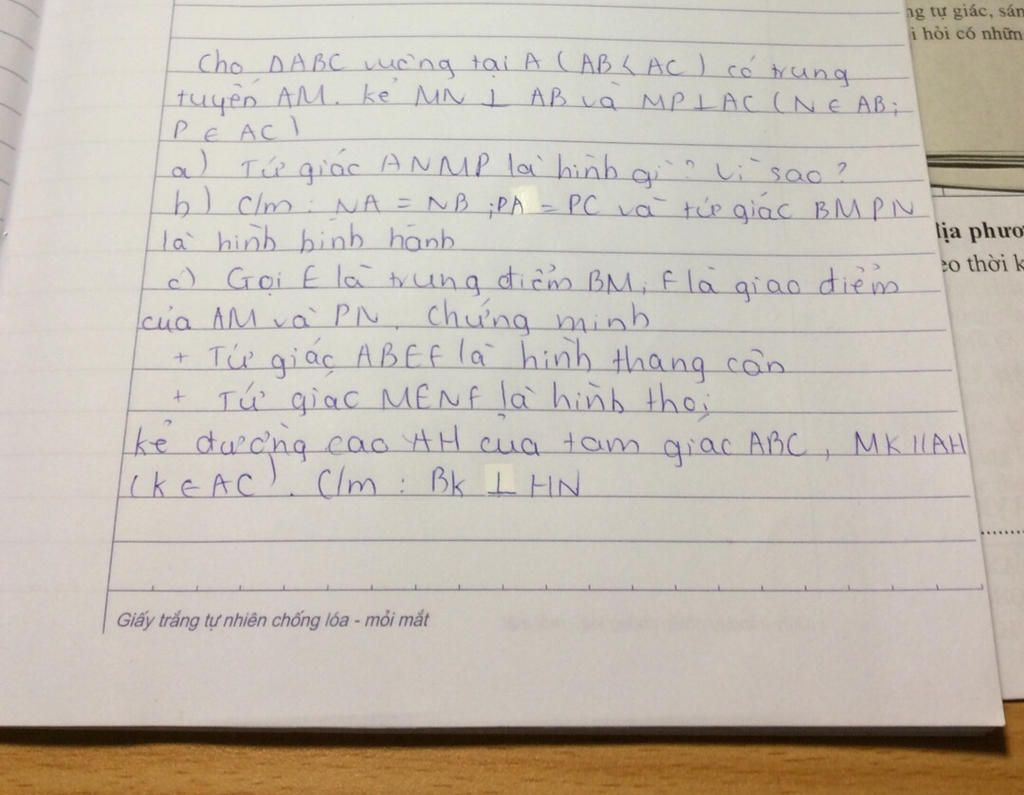 ng tự giác, sán
i hỏi có nhữn
Cho ΔABC vuông tại A (AB < AC) có trung
tuyến AM. kẻ MN ⊥ AB và MP ⊥ AC (N ∈ AB;
P ∈ AC)
a) Tứ giác ANMP là hình gì? Vì sao?
b) C/m: NA = NB ; PA = PC và tứ giác BMPN
là hình bình hành
c) Gọi E là trung điểm BM, F là giao điểm
của AM và PN. Chứng minh
+ Tứ giác ABEF là hình thang cân
+ Tứ giác MENF là hình thoi
kẻ đường cao AH của tam giác ABC, MK // AH
(K ∈ AC). C/m : BK ⊥ HN
lịa phươ
eo thời k
Giấy trắng tự nhiên chống lóa - mỏi mắt